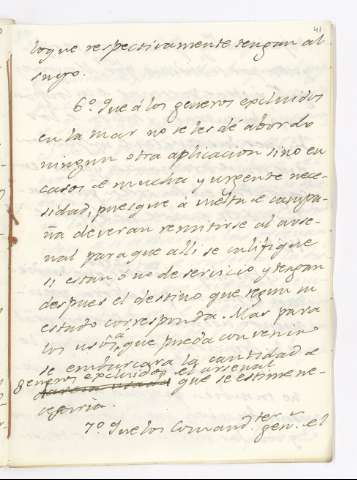 41
loque respectivamente tengan al
suyo.
6º. Que á los generos excluidos
en la mar no se les dé abordo
ningun otra aplicacion sino en
casos de mucha y urgente nece-
sidad, pues que á vuelta de campa-
ña deveran remitirse al arse-
nal para que alli se califique
si están ó no de servicio y tengan
despues el destino que segun su
estado corresponda. Mas para
los que pueda convenir
se embarcara la cantidad de
generos excluidos del arsenal
que se estime ne-
cesaria.
7º. Que los Comandtes. gen. el